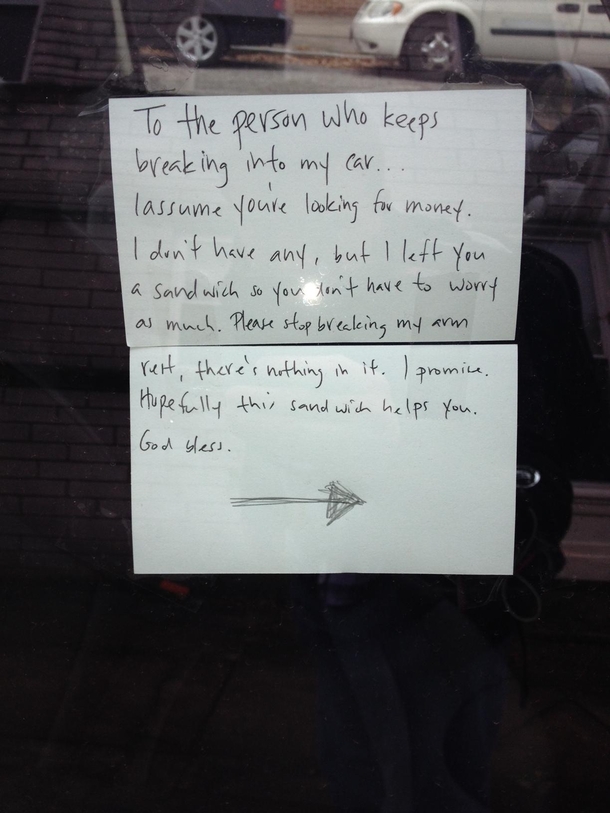 To the person who keeps
breaking into my car...
I assume you're looking for money.
I don't have any, but I left you
a sandwich so you don't have to worry
as much. Please stop breaking my arm
rest, there's nothing in it. I promise.
Hopefully this sandwich helps you.
God bless.